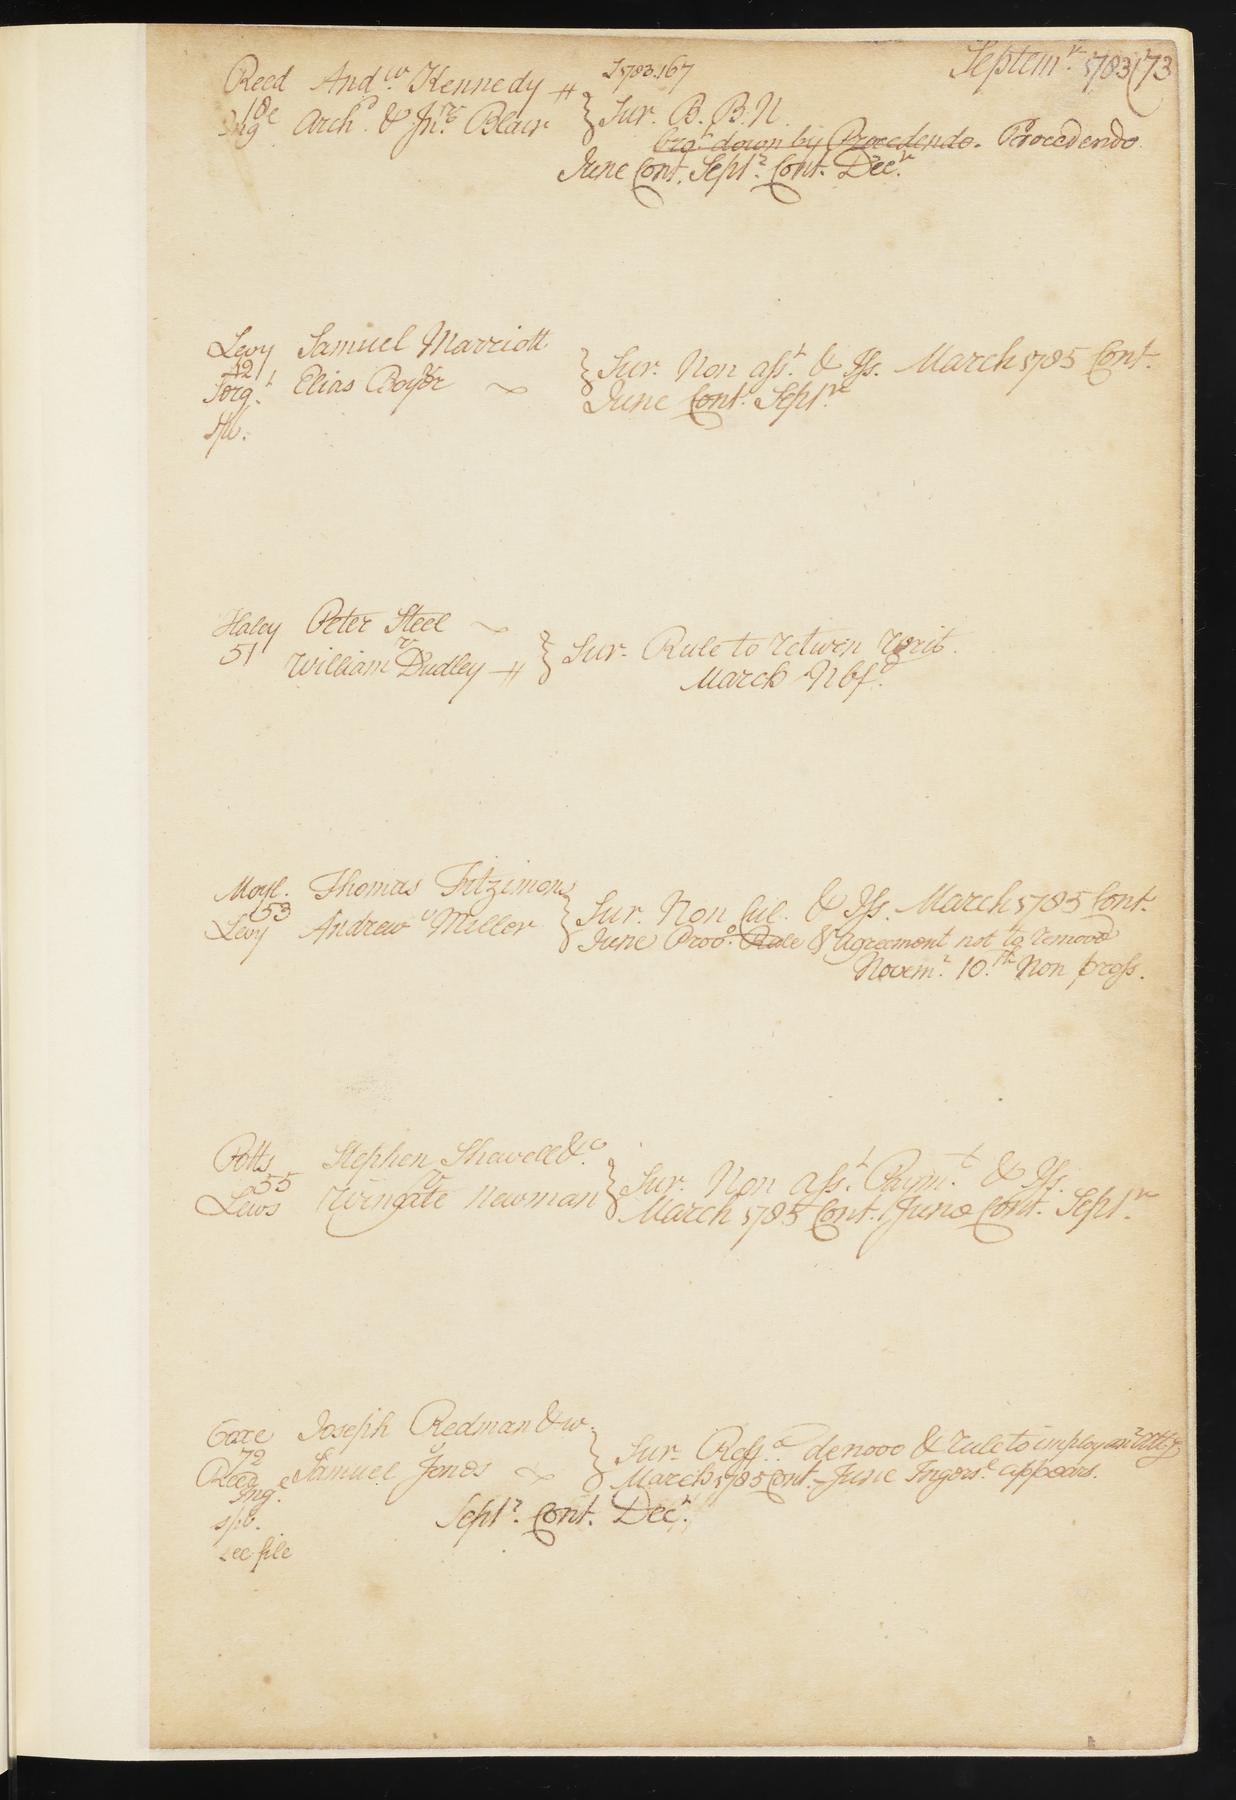 Septemr. 1783 (173
Reed And.w Kennedy J 1783.167
18 v Sur. B. B. N.
Ing.e Arch.d & Jn.o Blair
bro.t down by Procedendo. Procedendo
June Cont. Sept.r Cont. Dec.r
Levy Samuel Marriott
42 v Sur. Non ass.t & Iss. March 1785 Cont.
Serg.t Elias Boyer June Cont. Sept.r
spl.
Haley Peter Steel
51 v Sur. Rule to return Writ.
William Dudley March Nbf.d
Moyl. Thomas Fitzimons
53 v Sur. Non Cul. & Iss. March 1785 Cont.
Levy Andrew Miller June Proo.o Rule & agreement not to remove
Novem.r 10.th Non pross.
Potts Stephen Shewell & C.o
55 v Sur. Non ass.t Paym.t & Iss.
Lewis Wingate Newman March 1785 Cont. June Cont. Sept.r
Coxe Joseph Redman & w.
72 v Sur. Ref.d denovo & rule to imploy an.r Atty
Reed Samuel Jones March 1785 Cont. June Ingers.l appears.
Ing.e
spl. Sept.r Cont. Dec.r
see file